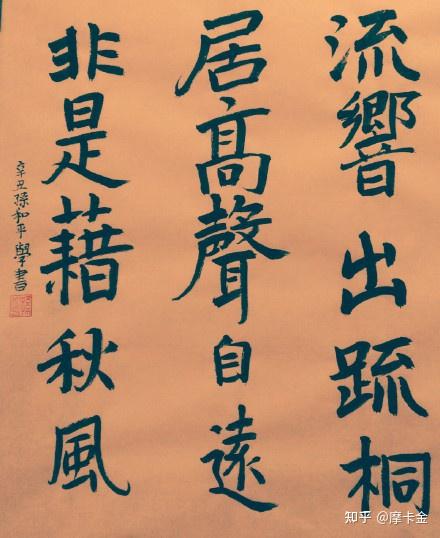 流響出疏桐
居高聲自遠
非是藉秋風
辛丑孫和平學書
知乎 @摩卡金